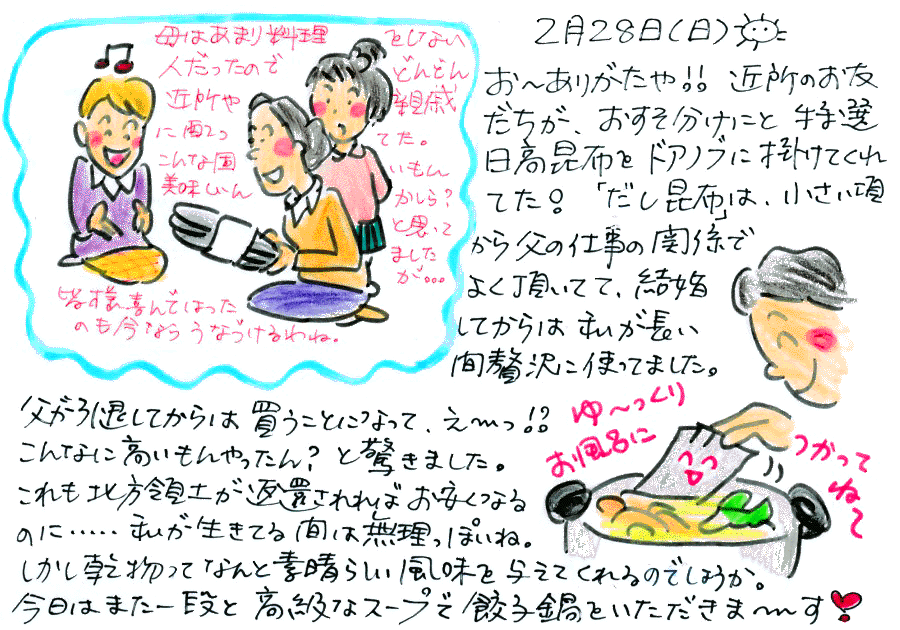 2月28日(日)
お〜ありがたや!! 近所のお友
だちが、おすそ分けにと 特選
日高昆布をドアノブに掛けてくれ
てた!「だし昆布」は、小さい頃
から父の仕事の関係で
よく頂いてて、結婚
してからは私が長い
間贅沢に使ってました。
父が引退してからは買うことになって、え〜っ!?
こんなに高いもんやったん?と驚きました。
これも北方領土が返還されればお安くなる
のに……私が生きてる間は無理っぽいね。
しかし乾物ってなんと素晴らしい風味を与えてくれるのでしょうか。
今日はまた一段と高級なスープで餃子鍋をいただきま〜す
母はあまり料理
人だったので
近所や
に配っ
こんな固
美味しいん
をしない
どんどん
親戚
てた。
いもん
かしら?
と思って
ました
が…
皆様喜んではった
のも今ならうなづけるわね。
ゆ〜っくり
お風呂に
つかって
ね〜